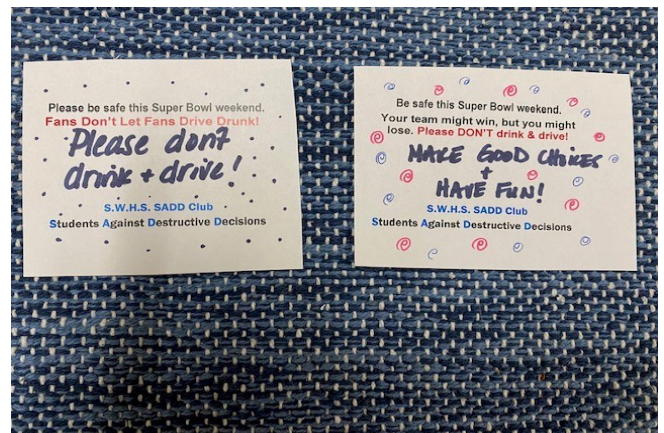 Please be safe this Super Bowl weekend.
Fans Don't Let Fans Drive Drunk!
Please don't
drink + drive!
S.W.H.S. SADD Club
Students Against Destructive Decisions
Be safe this Super Bowl weekend.
Your team might win, but you might
lose. Please DON'T drink & drive!
MAKE GOOD CHOICES
+
HAVE FUN!
S.W.H.S. SADD Club
Students Against Destructive Decisions